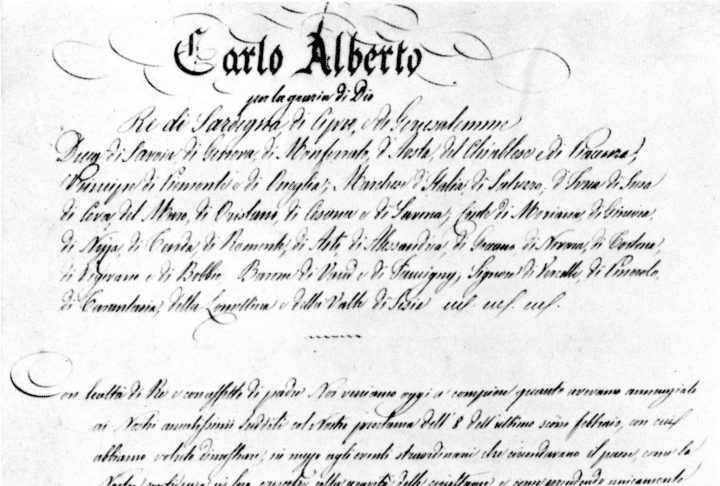 Carlo Alberto
per la grazia di Dio
Re di Sardegna di Cipro, e di Gerusalemme
Duca di Savoia, di Genova, di Monferrato, d'Aosta, del Chiablese e di Piacenza;
Principe di Piemonte e di Oneglia; Marchese d'Italia, di Saluzzo, d'Ivrea, di Susa
di Ceva, del Maro, di Oristano, di Cesana e di Savona; Conte di Moriana, di Ginevra,
di Nizza, di Tenda, di Romonte, di Asti, di Alessandria, di Goceano, di Novara, di Tortona,
di Vigevano e di Bobbio Barone di Vaud e di Faucigny, Signore di Vercelli, di Pinerolo,
di Tarantasia, della Lomellina e della Valle di Sesia ecc. ecc. ecc.
Con lealtà di Re e con affetto di padre Noi veniamo oggi a compiere quanto avevamo annunziato
ai Nostri amatissimi sudditi col Nostro proclama dell' 8 dell' ultimo scorso febbraio, con cui
abbiamo voluto dimostrare, in mezzo agli eventi straordinarii che circondavano il paese, come la
Nostra confidenza in loro crescesse colla gravità delle circostanze e come prendendo unicamente